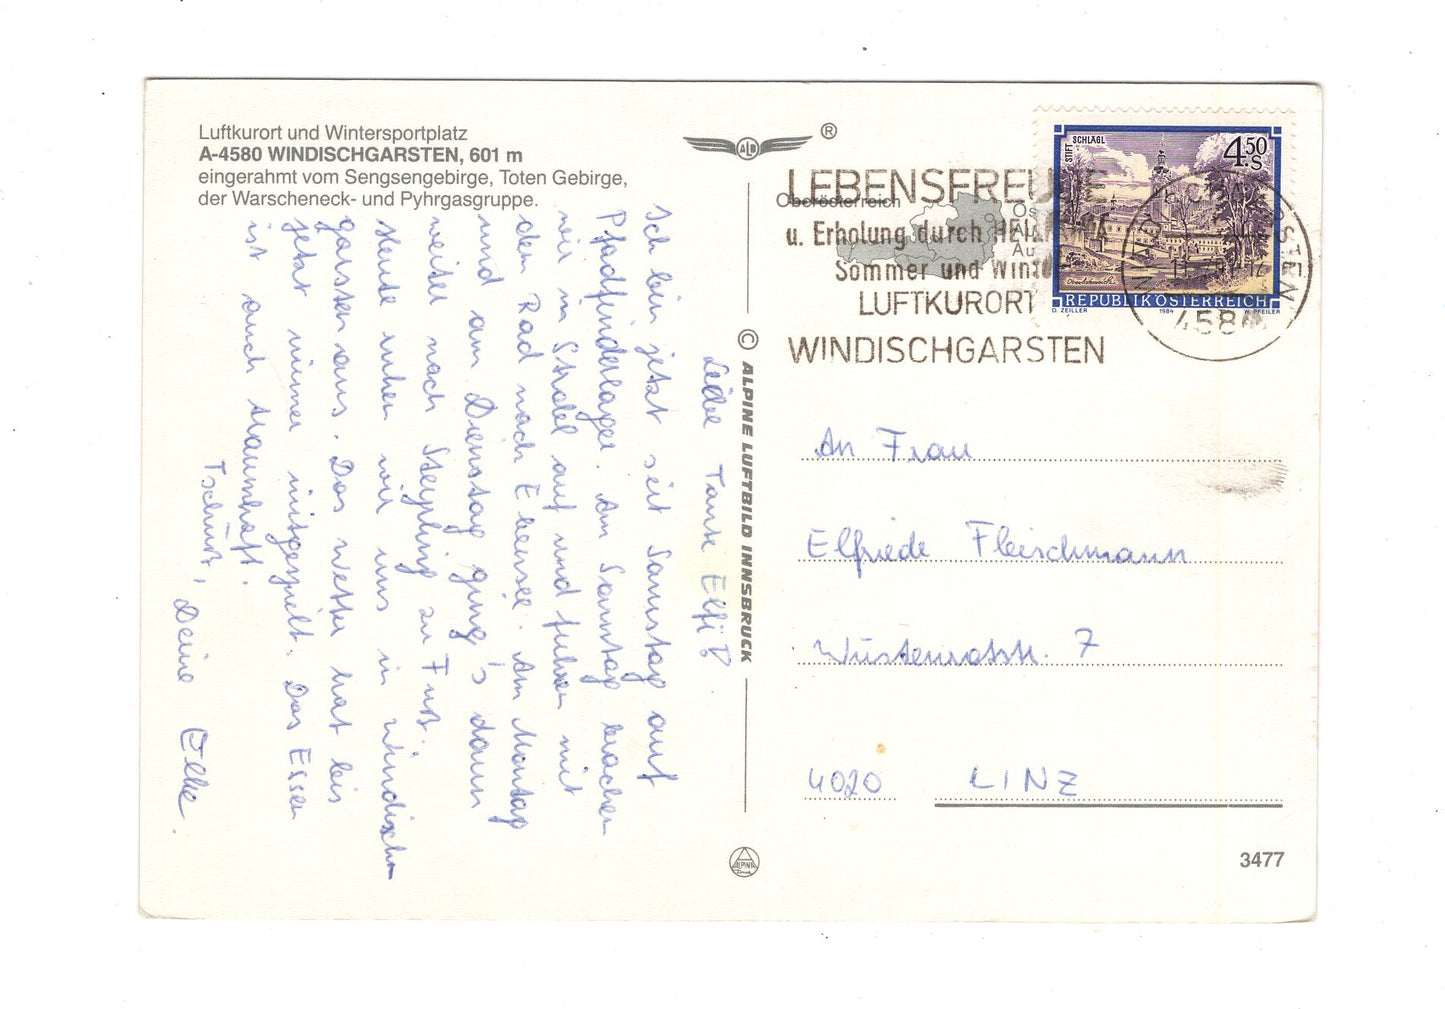 Luftkurort und Wintersportplatz
A-4580 WINDISCHGARSTEN, 601 m
eingerahmt vom Sengsengebirge, Toten Gebirge,
der Warscheneck- und Pyhrgasgruppe.
ALB ®
Oberösterreich
LEBENSFREUDE
u. Erholung durch
Sommer und
LUFTKURORT
WINDISCHGARSTEN
STIFT SCHLÄGL
4.50 S
REPUBLIK ÖSTERREICH
O. ZEILLER 1984 W. PFEILER
4580
Liebe Tante Elfi!
Ich bin jetzt seit Samstag auf
Pfadfinderlager. Am Sonntag brachen
wir in Stadl auf und fuhren mit
dem Rad nach Ebensee. Am Montag
und am Dienstag ging's dann
weiter nach Steyrling zu Fuß.
Heute ruhen wir uns in Windisch
garsten aus. Das Wetter hat bis
jetzt immer mitgespielt. Das Essen
ist auch traumhaft.
Tschüß,
Deine Elke.
© ALPINE LUFTBILD INNSBRUCK
An Frau
Elfriede Fleischmann
7
4020 LINZ
ALPINA
3477